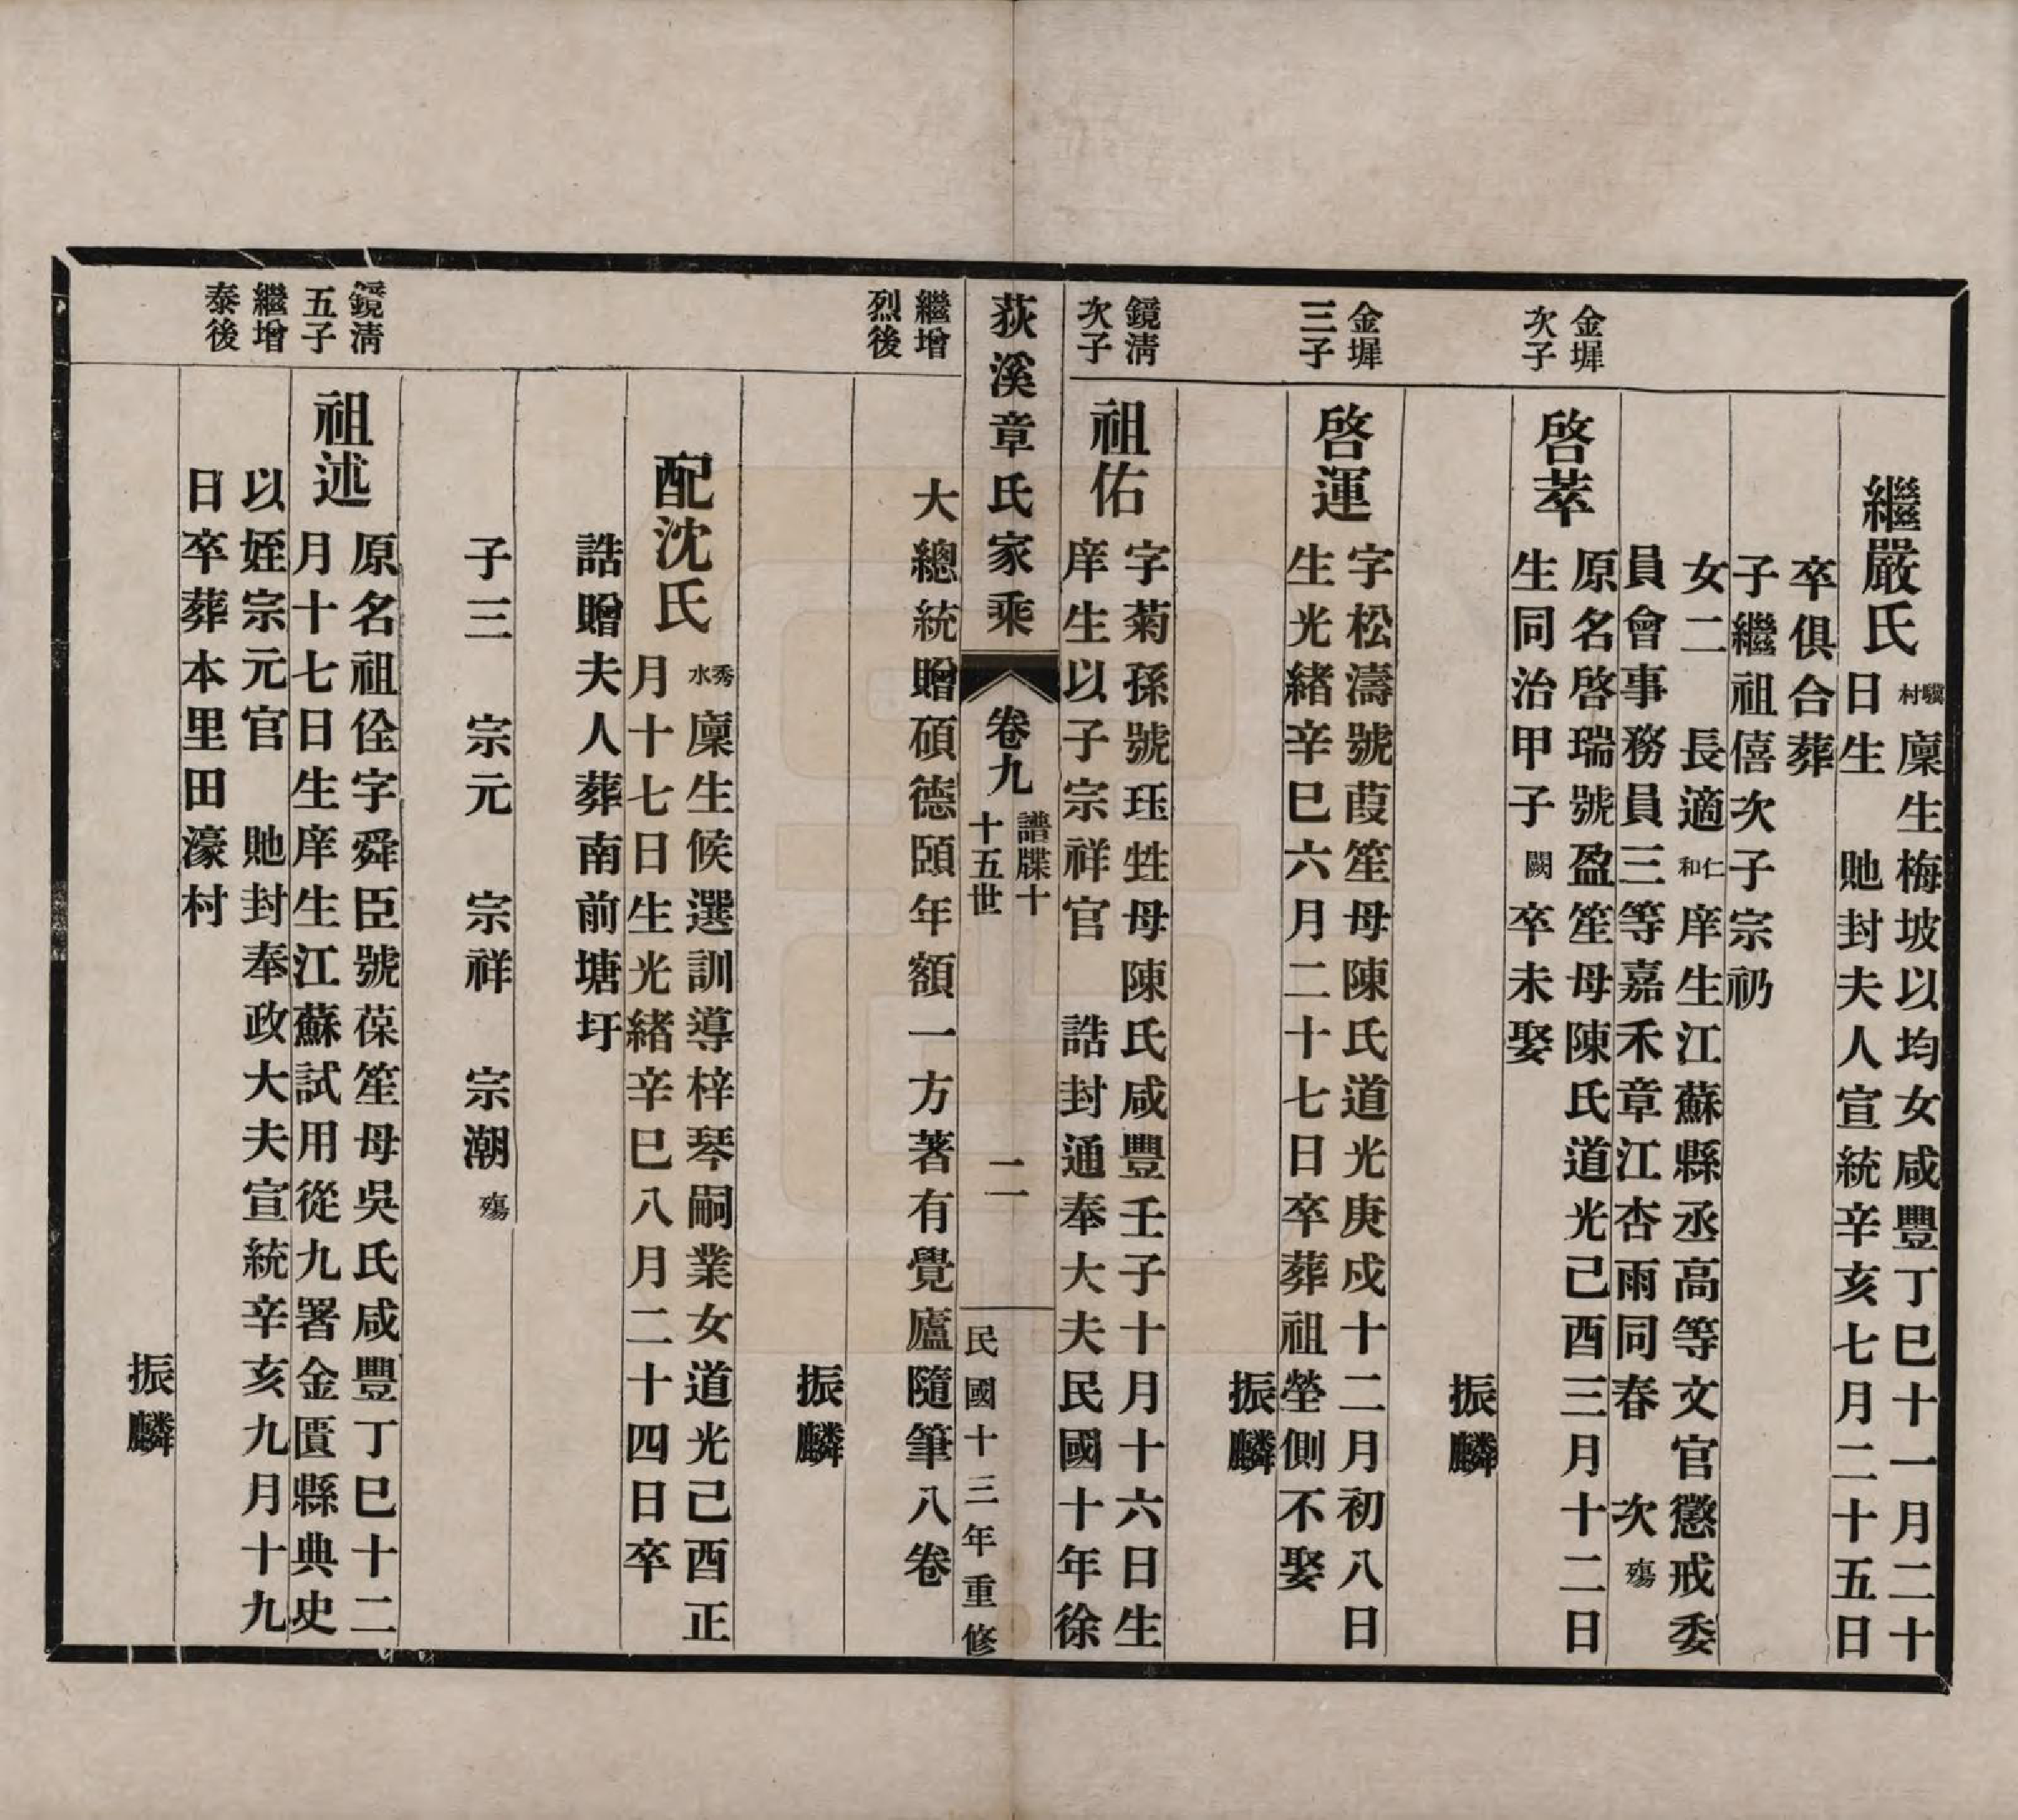 繼嚴氏
驥村
廩生梅坡以均女咸豐丁巳十一月二十
日生　貤封夫人宣統辛亥七月二十五日
卒俱合葬
子繼祖僖次子宗礽
女二　長適
仁和
庠生江蘇縣丞高等文官懲戒委
員會事務員三等嘉禾章江杏雨同春　次
殤
金墀
次子
啓萃
原名啓瑞號盈笙母陳氏道光己酉三月十二日
生同治甲子
闕
卒未娶
振麟
金墀
三子
啓運
字松濤號葭笙母陳氏道光庚戌十二月初八日
生光緒辛巳六月二十七日卒葬祖塋側不娶
振麟
鏡清
次子
祖佑
字菊孫號珏甡母陳氏咸豐壬子十月十六日生
庠生以子宗祥官　誥封通奉大夫民國十年徐
荻溪章氏家乘
卷九
譜牒十
十五世
二一
民國十三年重修
繼增
烈後
大總統贈碩德頤年額一方著有覺廬隨筆八卷
振麟
配沈氏
秀水
廩生候選訓導梓琴嗣業女道光己酉正
月十七日生光緒辛巳八月二十四日卒
誥贈夫人葬南前塘圩
子三　宗元　宗祥　宗潮
殤
鏡清
五子
繼增
泰後
祖述
原名祖佺字舜臣號葆笙母吳氏咸豐丁巳十二
月十七日生庠生江蘇試用從九署金匱縣典史
以姪宗元官　貤封奉政大夫宣統辛亥九月十九
日卒葬本里田濠村
振麟